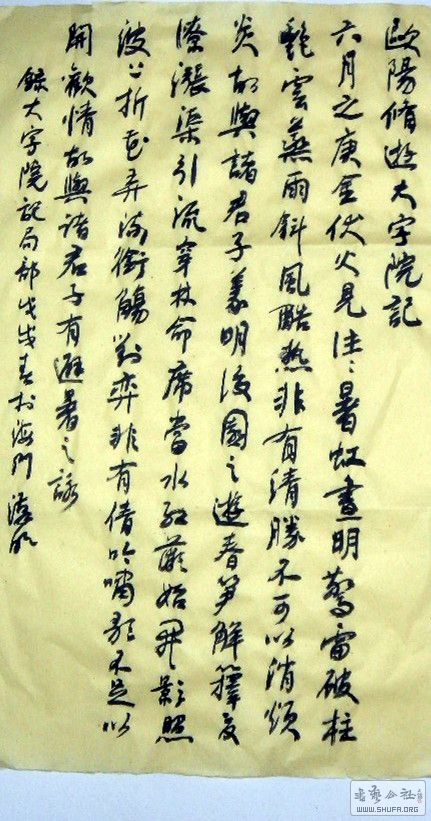 歐陽脩遊大字院記
六月之庚金伏火見往〻暑虹晝明驚雷破柱
鬱雲蒸雨斜風酷熱非有清勝不可以消煩
炎故與諸君子明後園之遊春筍解籜夏
潦漲渠引流穿林命席當水紅薇始開影照
波上折花弄流銜觴對弈非有清吟嘯歌不足以
開歡情故與諸君子有避暑之詠
錄大字院記局部戊戌春於海門
WWW.SHUFA.ORG